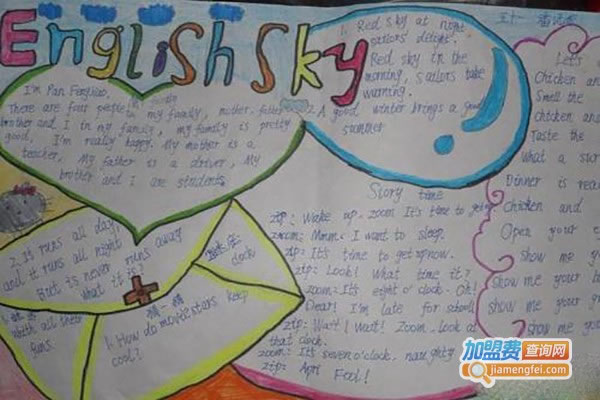 English Sky
I'm Pan
There are four people in my family, mother, father
brother and I in my family, my family is pretty
good, I'm really happy. My mother is a
teacher, My father is a driver, My
brother and I are students.
1. Red sky at night
sailors' delight.
Red sky in the
morning, sailors take
warning.
2. A good winter brings a good
summer
Let's
Chicken and
Smell the
chicken and
Taste the
what a sur
Dinner is rea
Chicken and
Open your e
show me yo
show me your b
show me your
show me you
Story time
zip: Wake up, zoom It's time to get up
zoom: Mmm. I want to sleep.
zip: It's time to get up now.
zip: Look! What time it?
zoom: It's eight o'clock. Oh!
Dear! I'm late for school!
zip: Wait! Wait! Zoom, look at
that clock.
zoom: It's seven o'clock, naughty
zip: April Fool!
2. It runs all day,
and it runs all night
But it's never runs away
what it is?
clock
猜一猜
1. How do movie stars keep
cool?
with all their
fans.
加盟费查询网
jiamengfei.com